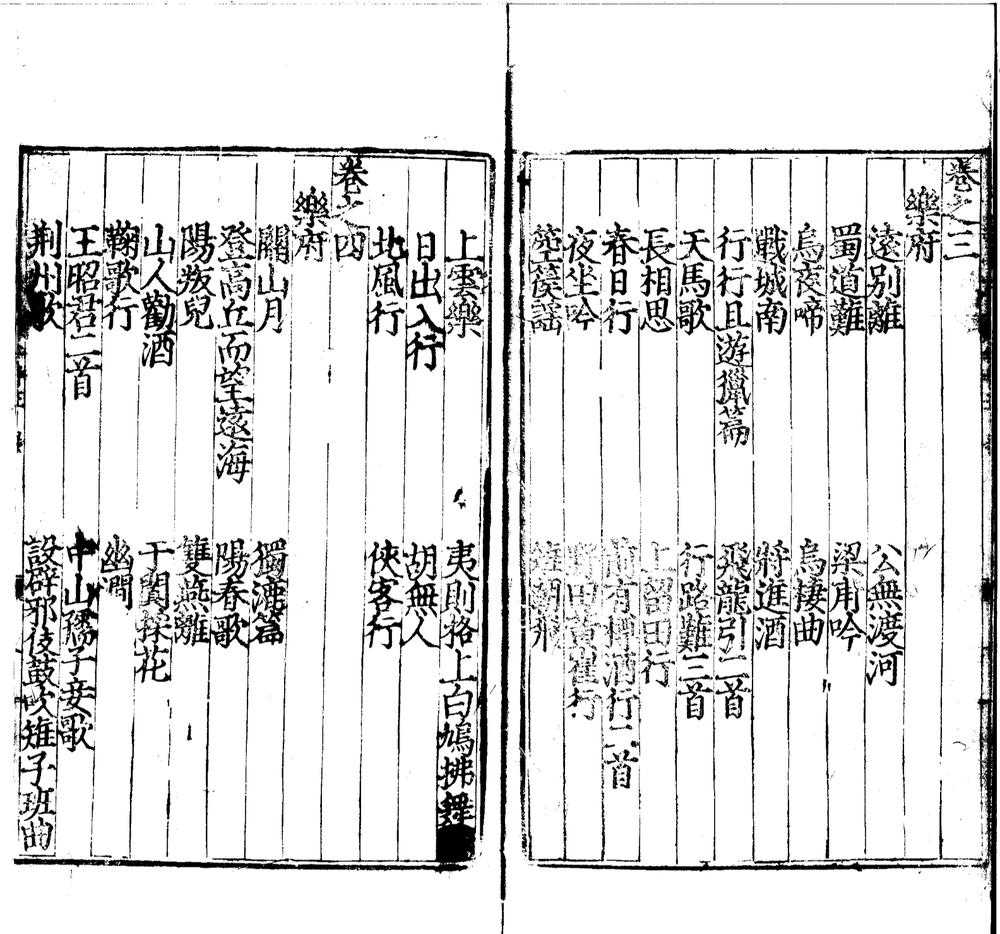 卷之三
樂府
遠別離 公無渡河
蜀道難 梁甫吟
烏夜啼 烏棲曲
戰城南 將進酒
行行且遊獵篇 飛龍引二首
天馬歌 行路難三首
長相思 上留田行
春日行 前有樽酒行二首
夜坐吟 野田黃雀行
箜篌謠 雉朝飛
上雲樂 夷則格上白鳩拂舞
日出入行 胡無人
北風行 俠客行
卷之四
樂府
關山月 獨漉篇
登高丘而望遠海 陽春歌
陽叛兒 雙燕離
山人勸酒 于闐採花
鞠歌行 幽澗
王昭君二首 中山孺子妾歌
荆州歌 設辟邪伎鼓吹雉子班曲